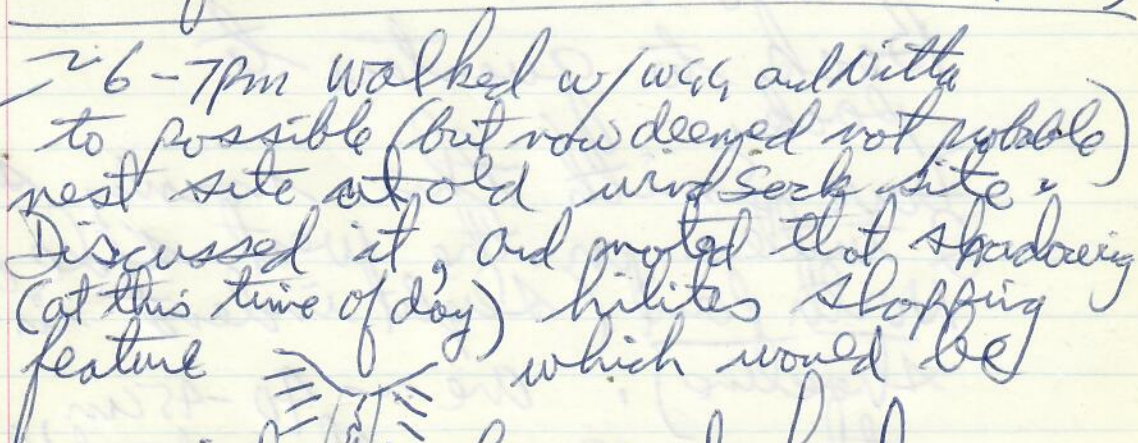 ~ 6-7pm walked w/ WGG and Nitta
to possible (but now deemed not probable)
nest site at old wind sock site.
Discussed it, and noted that shadowing
(at this time of day) hilites slopping
feature which would be